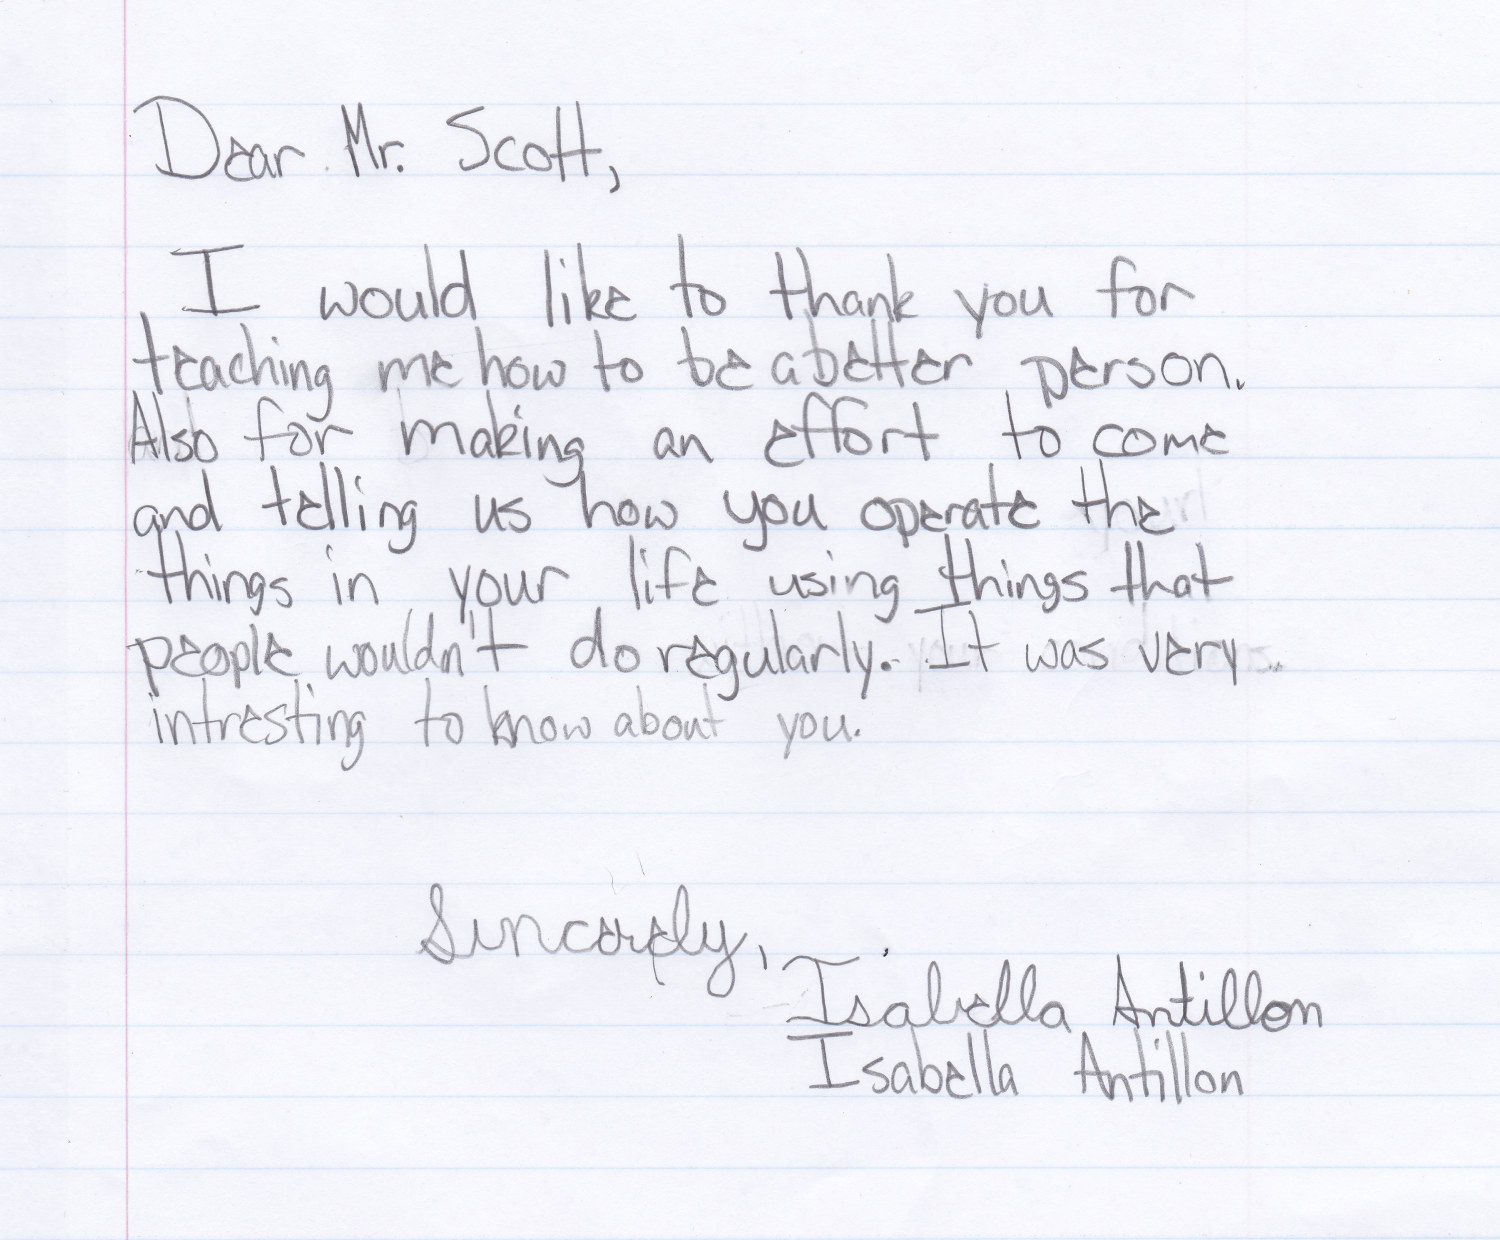 Dear Mr. Scott,
I would like to thank you for
teaching me how to be a better person.
Also for making an effort to come
and telling us how you operate the
things in your life using things that
people wouldn't do regularly. It was very
intresting to know about you.
Sincerely,
Isabella Antillon
Isabella Antillon